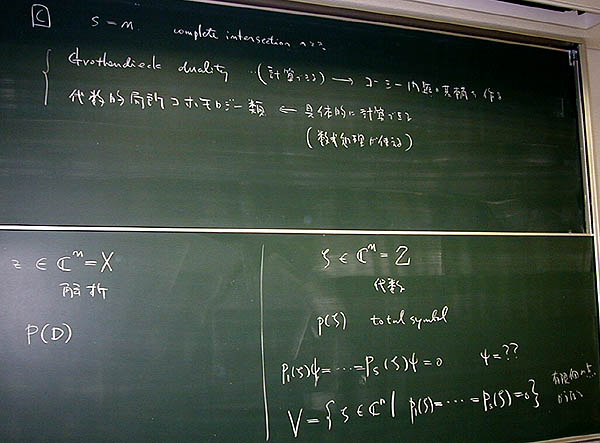 C S = n complete intersection
Grothendieck duality (計算できる) → コーシー問題の
代数的局所コホモロジー類 ← 具体的に計算できる
(数式処理が使える)
z ∈ ℂⁿ = X
解析
P(D)
ζ ∈ ℂⁿ = Z
代数
p(ζ) total symbol
P₁(ζ)ψ = ⋯ = Pₛ(ζ)ψ = 0 ψ = ??
V = { ζ ∈ ℂⁿ | p₁(ζ) = ⋯ = pₛ(ζ) = 0 }